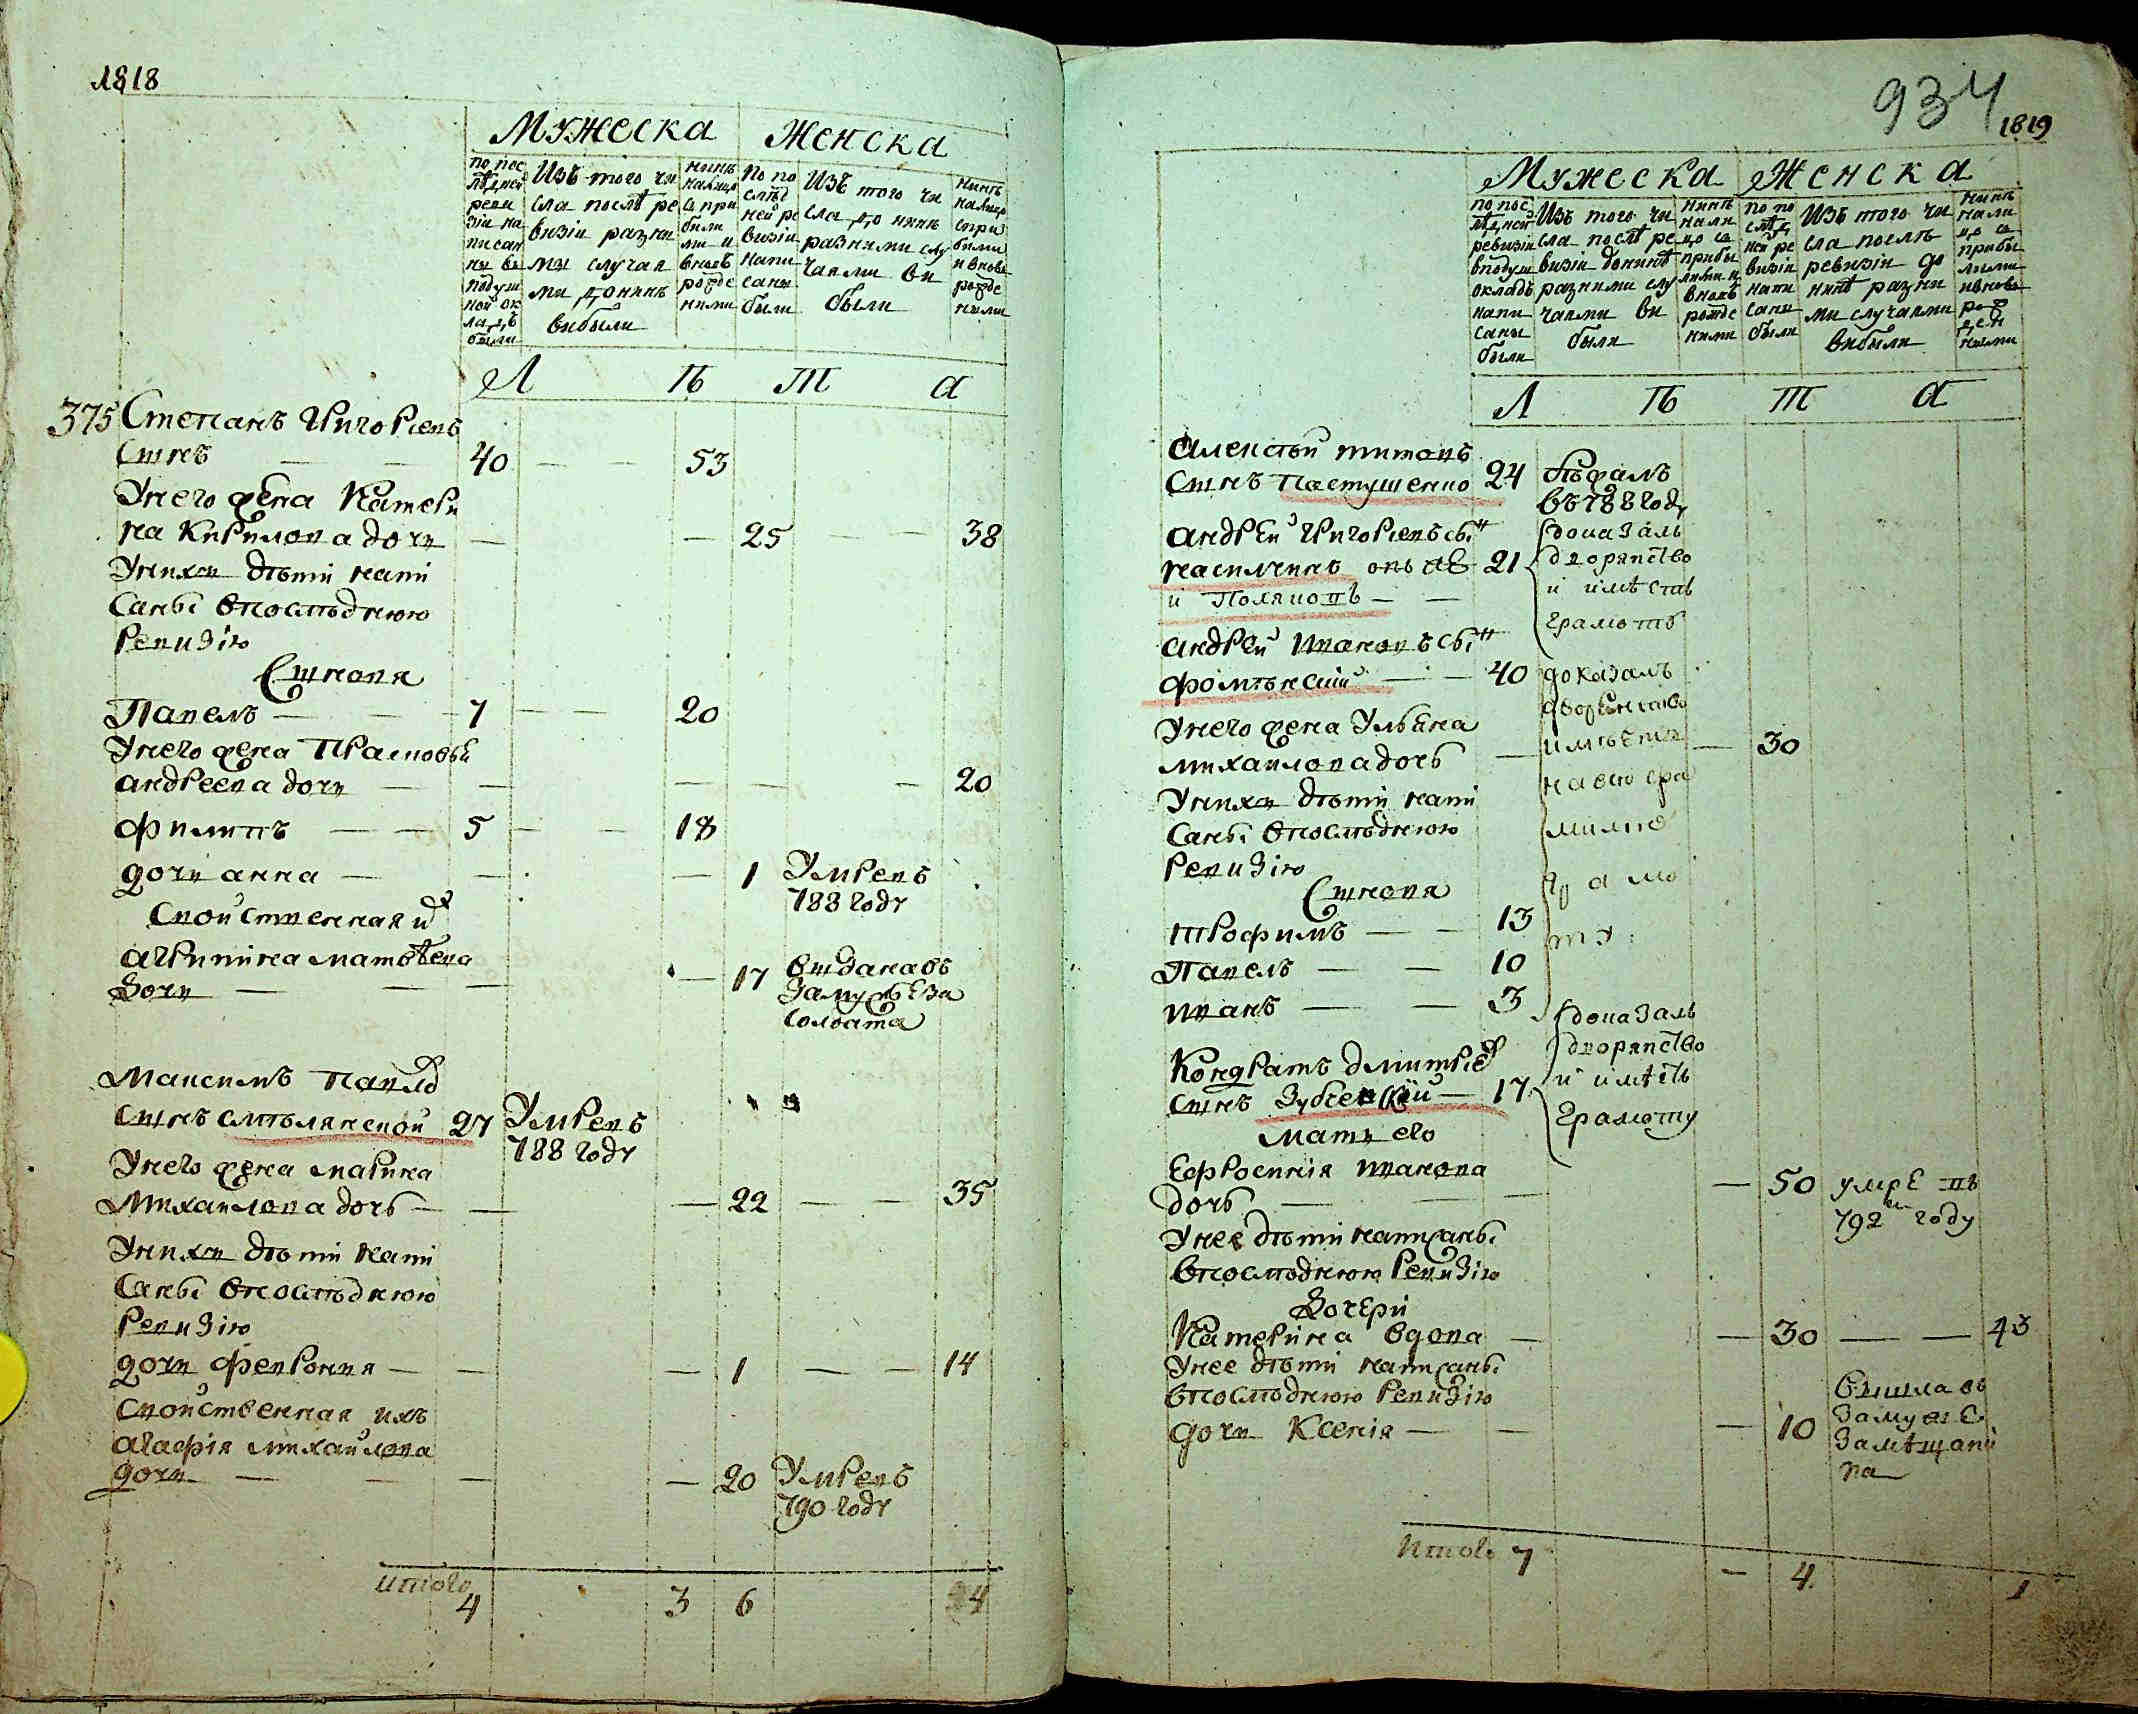 1818
Мужеска Женска
по пос
лѣдней
реви
зіи на
писан
ны въ
подуш
ной ок
ладъ
были
Изъ того чи
сла послѣ ре
визіи разны
ми случая
ми донинѣ
выбыли
нинѣ
налицо
съ при
были
ми и
вновь
рожде
ними
По по
слѣд
ней ре
визіи
напи
саны
были
Изъ того чи
сла до нинѣ
разними слу
чаями вы
были
нинѣ
налицо
спри
были
ивновь
рожде
ними
Л Ѣ Т А
375 Степанъ Григорьевъ
сынъ — — 40 — — 53
Унего жена Катери
на Кирилова дочь — — 25 — — 38
Унихъ дѣти напи
саны впослѣднюю
ревизію
Сыновя
Павелъ — — 7 — — 20
Унего жена Прасковья
андреева дочь — — — — — 20
Филипъ — — 5 — — 18
дочь анна — — — 1 Умре въ
788 году
Свойственная их
агрипина матвѣева
дочь — — — — 17 выдана въ
замужъ за
солдата
Максимъ Павло
сынъ смѣлянской 27 Умре въ
788 году
Унего жена марина
Михаилова дочь — — — 22 — — 35
Унихъ дѣти напи
саны впослѣднюю
ревизію
дочь Феврония — — — 1 — — 14
Свойственная ихъ
агафія михайлова
дочь — — — — 20 Умре въ
790 году
итого 4 3 6 4
934
1819
Мужеска Женска
по пос
лѣдней
ревизіи
вподуш
окладъ
напи
саны
были
Изъ того чи
сла послѣ ре
визіи донинѣ
разними слу
чаями вы
были
нинѣ
нали
цо съ
прибы
лими и
вновь
рожде
ними
по по
слѣд
ней ре
визіи
напи
саны
были
Изъ того чи
сла послѣ
ревизіи до
нинѣ разни
ми случаями
выбыли
нинѣ
нали
цо съ
прибы
лими
ивновь
рож
ден
ными
Л Ѣ Т А
Алексѣй титовъ
сынъ Пастушенко 24 бѣжалъ
въ 788 году
андрей Григорьевъ сынъ
касилчинъ онъ же 21
и Поляновъ — —
доказалъ
дворянство
и имѣетъ
грамоту
андрей Ивановъ сынъ
Фомѣнский — — 40 доказалъ
дворянство
Унего жена Ульяна
михаилова дочь — имѣетъ — 30
на сию фа
милию
гра мо
ту:
Унихъ дѣти напи
саны впослѣднюю
ревизію
Сыновя
трофимъ — — 13
Павелъ — — 10
иванъ — — 3
Кондратъ Дмитрие
сынъ Зубенский — 17
доказалъ
дворянство
и имѣетъ
грамоту
мать его
Ефросинія иванова
дочь — — — — 50 умре въ
792м году
Унее дѣти написаны
впослѣднюю ревизію
дочери
Катерина вдова — — 30 — — 43
Унее дѣти написаны
впослѣднюю ревизію
дочь Ксенія — — — 10 вишла въ
замуже
замѣщани
на
итого 7 — 4 1